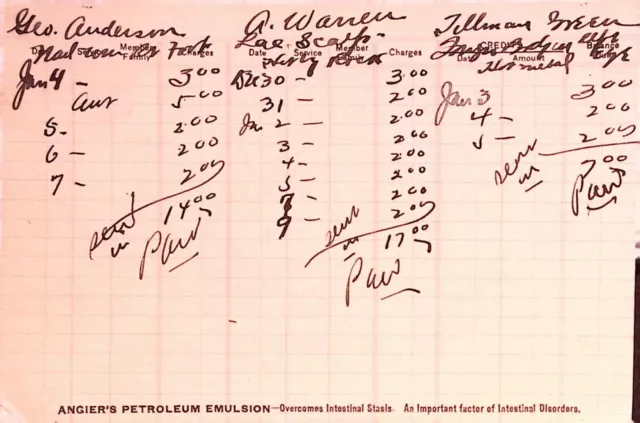 Geo. Anderson
Nail
Date Member Family Charges
Jan 4 - 3 00
Aur 5 00
5 - 2 00
6 - 2 00
7 - 2 00
14 00
sent in
Paid
A. Warren
Lac Scalp
Date Service Member Family Charges
Dec 30 - 3 00
31 - 2 00
Jan 2 - 2 00
3 - 2 00
4 - 2 00
5 - 2 00
7 - 2 00
9 - 2 00
sent in
17 00
Paid
Tillman Green
CREDITS
Date Amount Balance Due
Hot metal
Jan 3 3 00
4 - 2 00
5 - 2 00
sent in
7 00
Paid
ANGIER'S PETROLEUM EMULSION—Overcomes Intestinal Stasis. An Important factor of Intestinal Disorders.